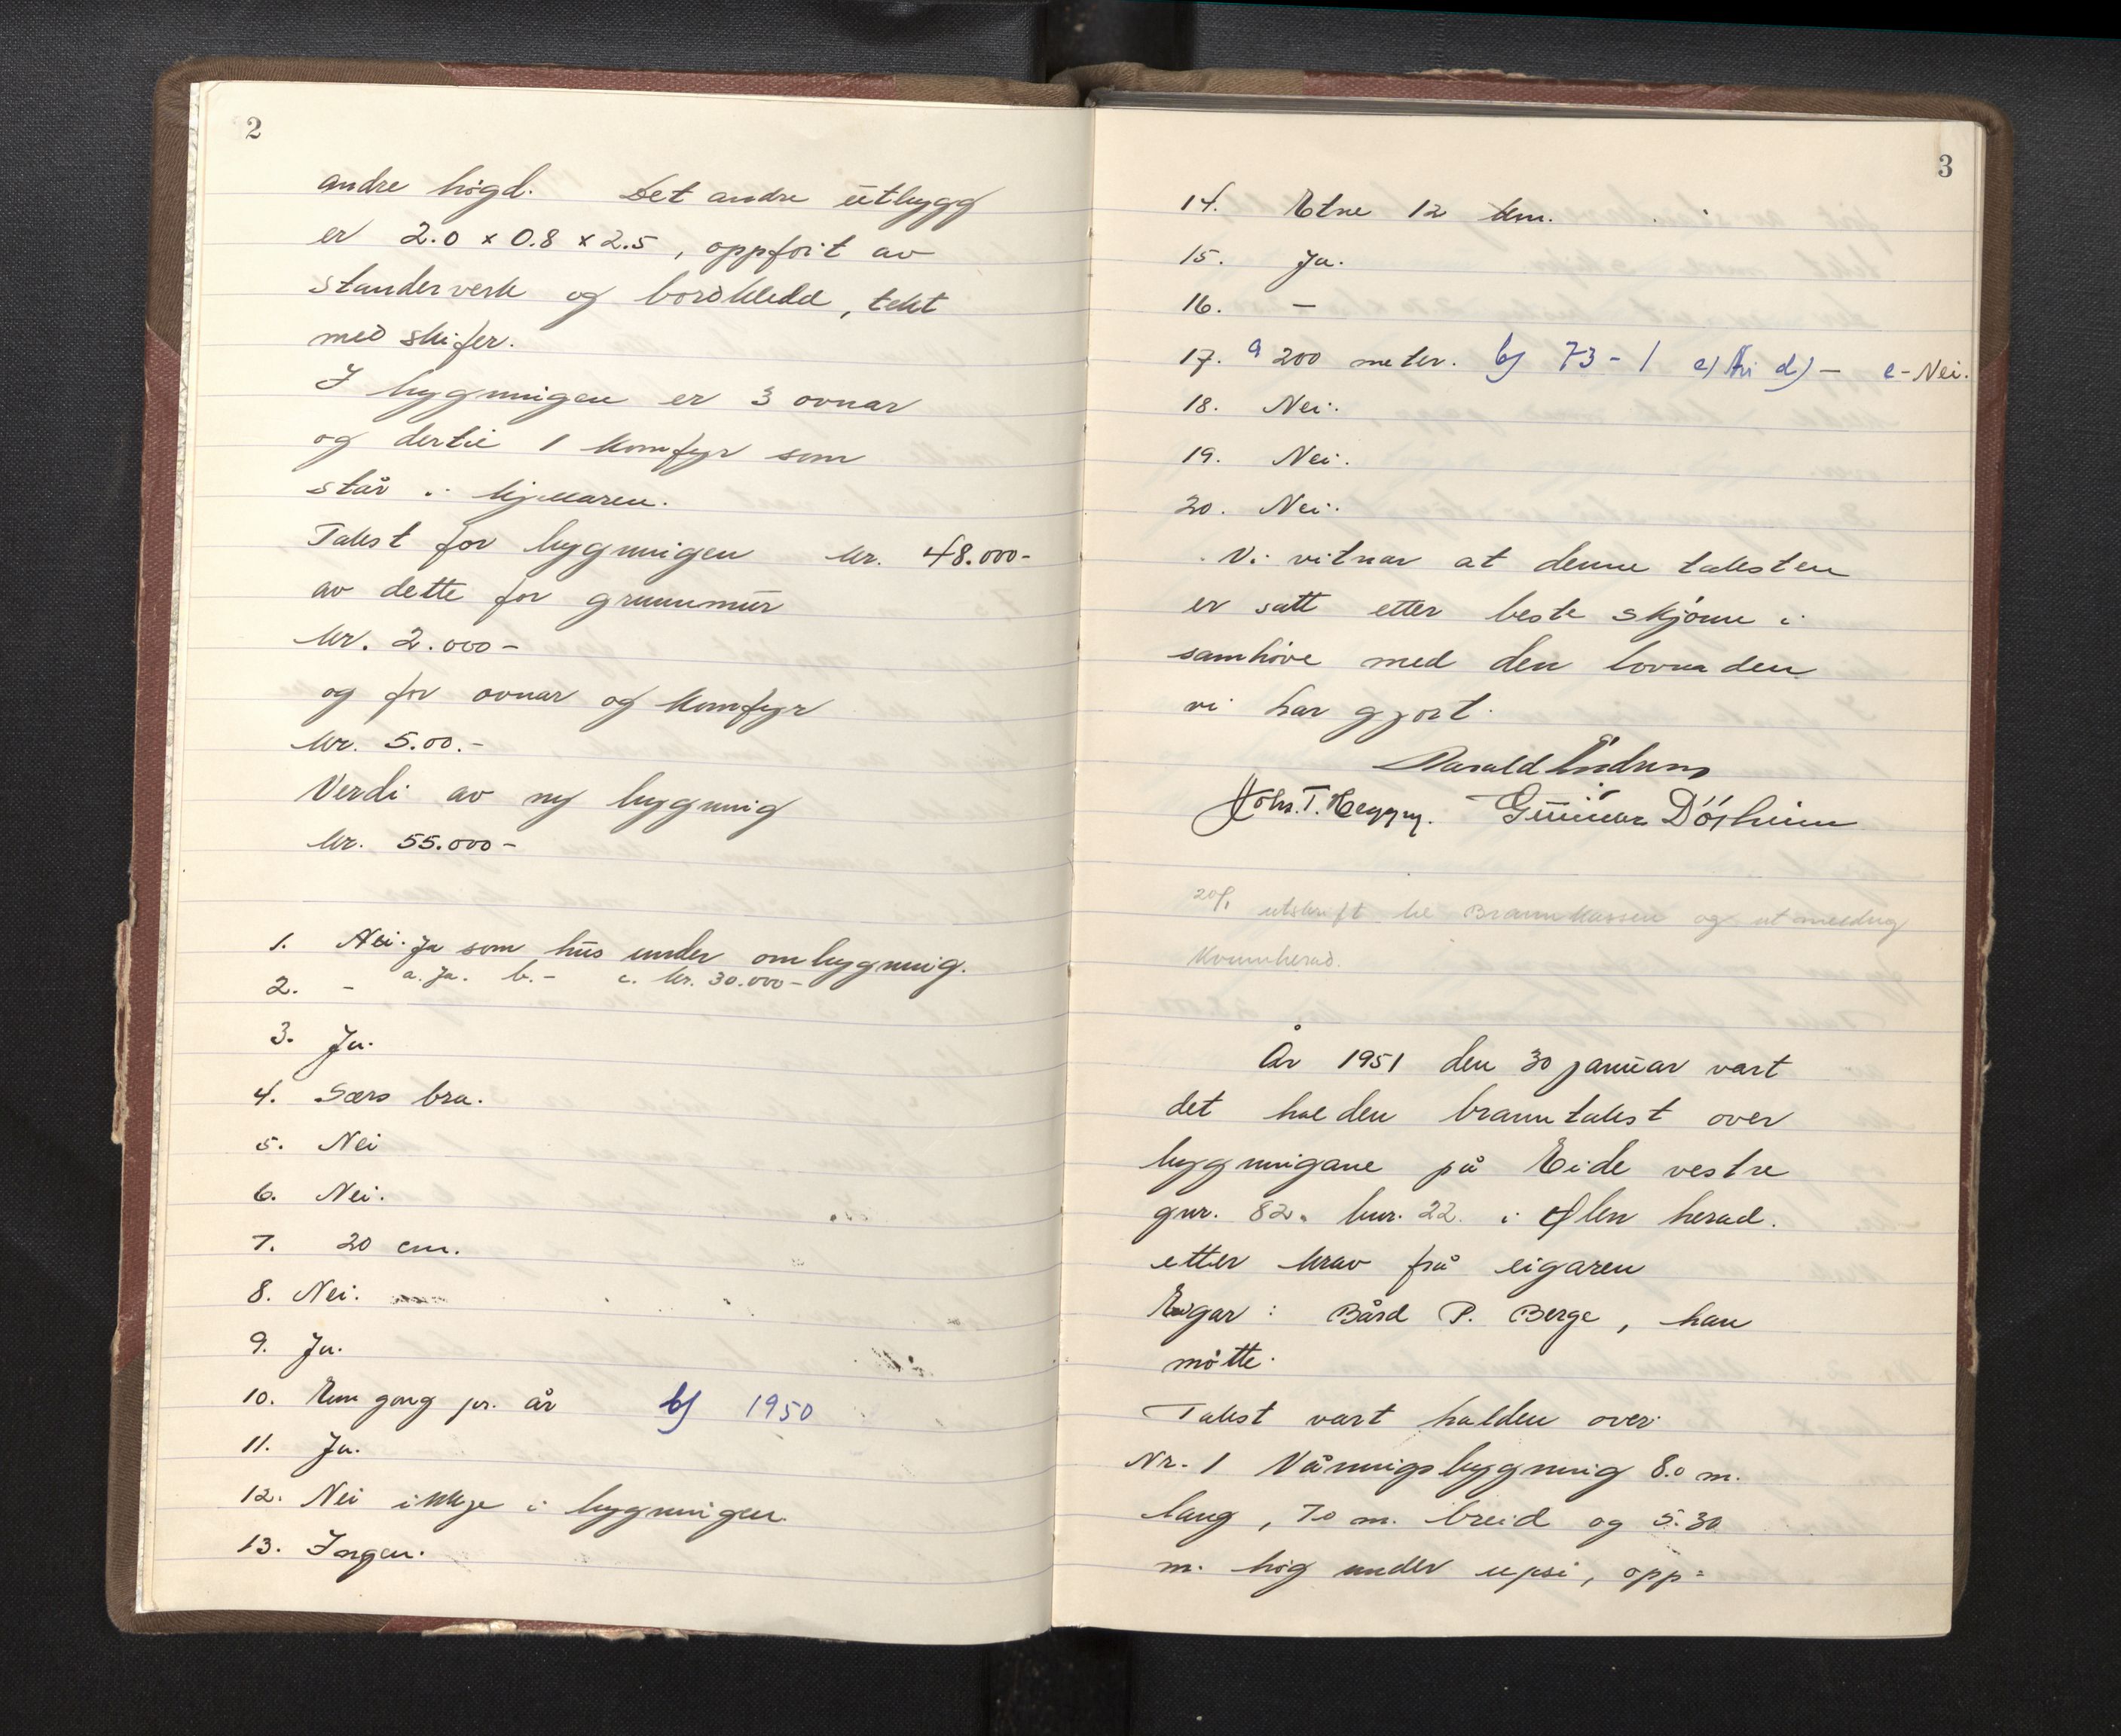 2
andre högd. Det andre ūtbygg
er 2.0 x 0.8 x 2.5, oppfört av
standerverk og bordkledd, tekt
med skifer.
I bygningen er 3 ovnar
og dertil 1 komfyr som
står i kjellaren.
Takst for bygningen kr. 48.000-
av dette for grunnmūr
kr. 2.000-
og for ovnar og komfyr
kr. 5.00.-
Verdi av ny bygning
kr. 55.000-
1. Nei. Ja som hūs under ombygning.
2. - a. Ja. b. - c. kr. 30.000-
3. Ja.
4. Særs bra.
5. Nei
6. Nei.
7. 20 cm.
8. Nei.
9. Ja.
10. Ein gong pr. år b) 1950
11. Ja.
12. Nei ikkje i bygningen.
13. Ingen.
3
14. Etne 12 km.
15. Ja.
16. -
17. a 200 meter. b) 73-1 c) d) - e-Nei.
18. Nei.
19. Nei.
20. Nei.
Vi vitnar at denne taksten
er satt etter beste skjönn i
samhöve med den lovnaden
vi har gjort.
Harald
Johs. T. Gūnnar Dörheim
20/1 utskrift til Brannkassen og utmelding
Kvinnherad.
År 1951 den 30 janūar vart
det halden branntakst over
bygningane på Eide vestre
gnr. 82. bnr. 22. i Ølen herad.
etter krav frå eigaren
Eigar: Bård P. Berge, han
mötte.
Takst vart halden over
Nr. 1 Våningsbygning 8.0 m.
lang, 7.0 m. breid og 5.30
m. hög under upsi, opp=